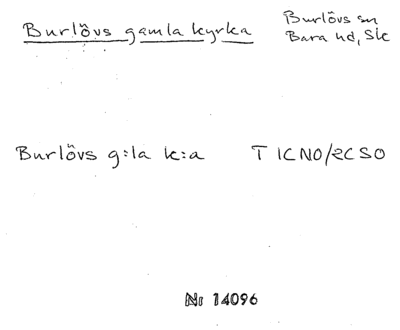 Burlövs gamla kyrka
Burlövs sn
Bara hd, Sk
Burlövs g:la k:a T 1CNO/2CSO
Nr 14096